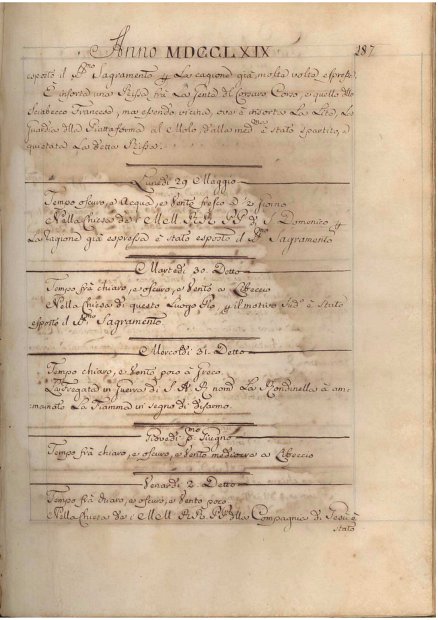 Anno MDCCLXIX 187
esposto il SSmo Sagramento p La cagione già molte volte espressa.
È insorta una Rissa frà La Gente del Corsaro Corso, e quello dello
Sciabecco Francese, ma essendo vicina, ove è insorta La Lite, La
Guardia della Piattaforma al Molo, dalla medma è stata spartita, e
quietata La detta Rissa.
Lunedi 29 Maggio
Tempo oscuro, e Acqua, e Vento fresco a 2 giorno
Nella Chiesa de i M.M. R.R. PP. di S. Domenico p
La Cagione già espressa è stato esposto il SSmo Sagramento
Martedi 30. Detto
Tempo frà chiaro, e oscuro, e Vento a Libeccio
Nella Chiesa di questo Luogo Pio p il motivo Sudo è Stato
esposto il SSmo Sagramento.
Mercoldi 31. Detto
Tempo chiaro, e Vento poco à Greco.
La Fregata in guerra di S. A. R. nom La Rondinella à am-
mainato La Fiamma in segno di disarmo.
Giovedi pmo Giugno
Tempo frà chiaro, e oscuro, e Vento mediocre a Libeccio
Venardi 2. Detto
Tempo frà chiaro, e oscuro, e Vento poco
Nella Chiesa de i M.M. R.R. PP. della Compagnia di Gesù è
stato